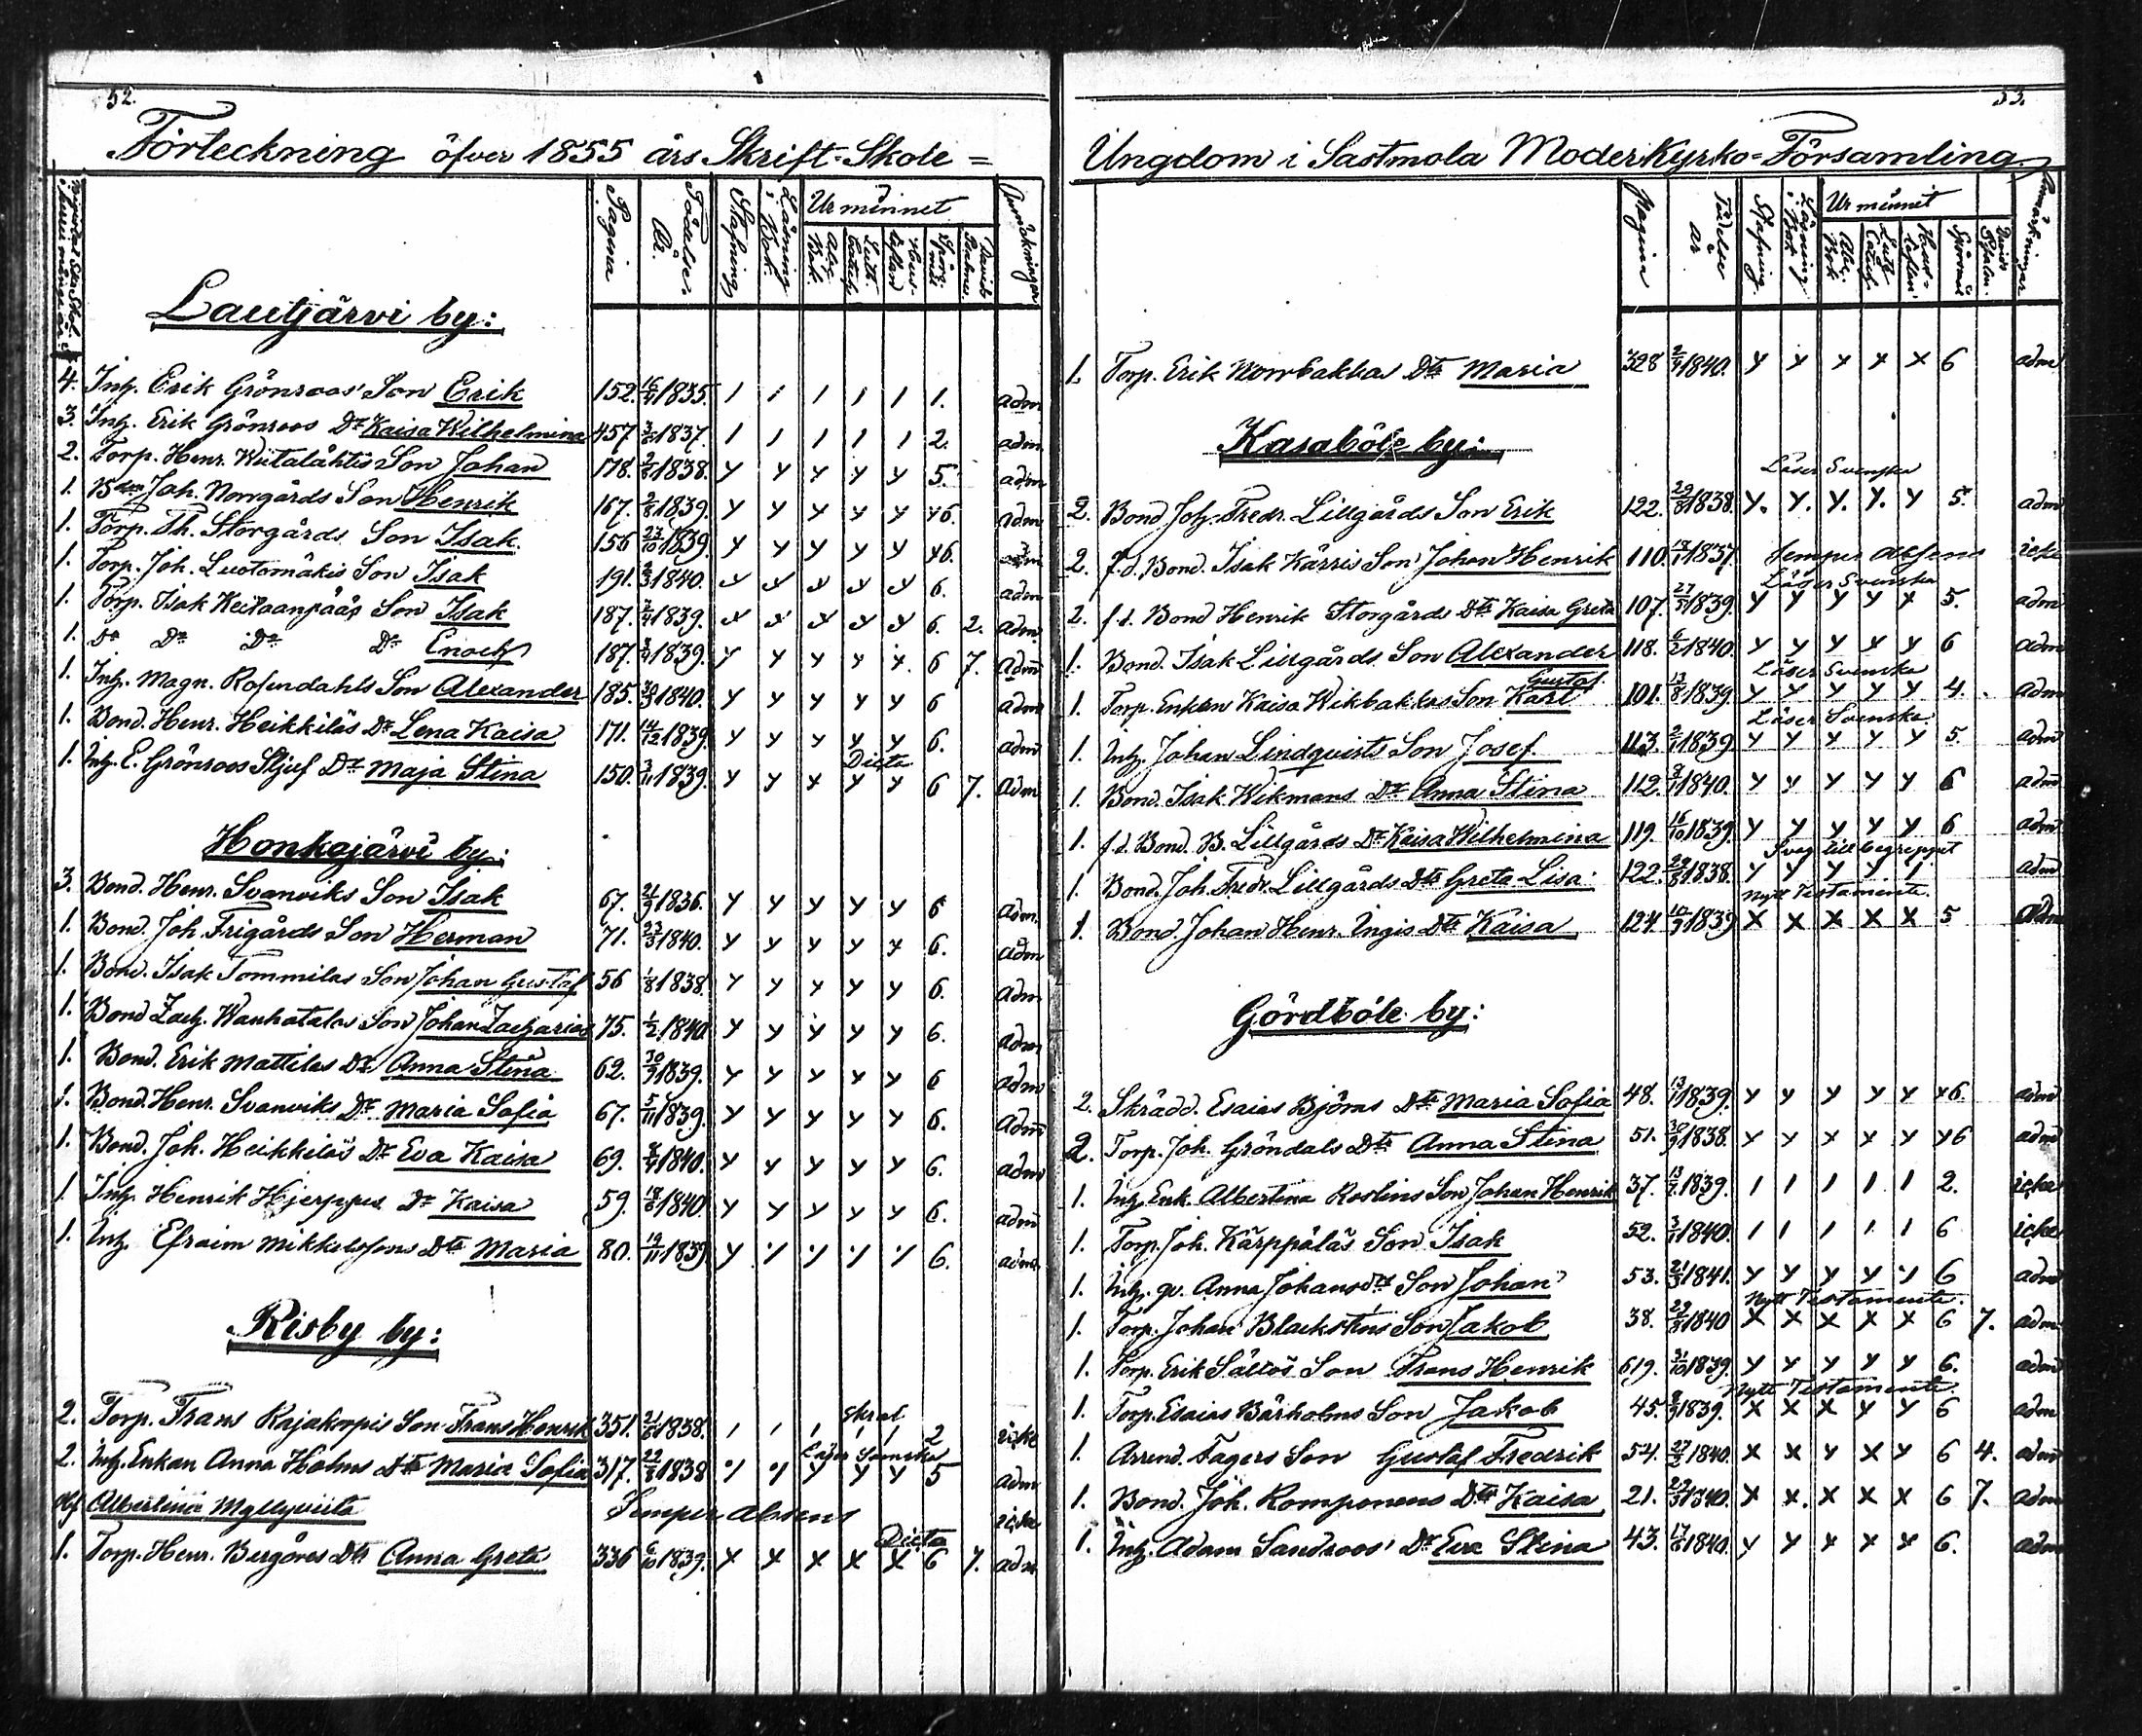 52.
Förteckning öfver 1855 års Skrift-Skole =
Pagina
Födelse År.
Stafning
Läsning i Bok.
Ur minnet
Abc Bok.
Luth. Catech.
Hus-taflan
Spörsmål
Davids Psalmer.
Anmärkningar
Lautjärvi by:
4. Inh. Erik Grönroos' Son Erik 152. 16/4 1835. / / / / / 1. adm
3. Inh. Erik Grönroos Dr Kaisa Wilhelmina 457 1837. / / / / / 2. adm
2. Torp. Henr. Wiitalähtis Son Johan 178. 1838. y y y y y 5. adm
1. Bdn Joh. Norrgårds Son Henrik 167. 1839. y y y y y 6. adm
1. Torp. Th. Storgårds Son Isak. 156 23/10 1839. y y y y y 6. adm
1. Torp. Joh. Luotomäkis Son Isak 191. 1840. y y y y y 6. adm
1. Torp. Isak Keitaanpääs Son Isak 187. 1839. y y y y y 6. 2. adm
1. Do Do Do Do Enoch 187. 1839. y y y y y 6 7. adm
1. Inh. Magn. Rosendahls Son Alexander 185. 1840. y y y y y 6 adm
1. Bond. Henr. Heikkiläs Dr Lena Kaisa 171. 14/12 1839. y y y y y 6. adm
Dicta
1. Inh. E. Grönroos Stjuf Dr Maja Stina 150. 3/11 1839. y y y y y 6 7. adm
Honkajärvi by:
3. Bond. Henr. Svanviks Son Isak 67. 21/9 1836. y y y y y 6 adm.
1. Bond. Joh. Frigårds Son Herman 71. 23/3 1840. y y y y y 6. adm
1. Bond. Isak Tommilas Son Johan Gustaf 56 1/8 1838. y y y y y 6. adm
1. Bond Zach. Wanhatalos Son Johan Zacharias 75. 1/2 1840 y y y y y 6. adm
1. Bond. Erik Mattilas Dr Anna Stina 62. 30/9 1839. y y y y y 6 adm
1. Bond. Henr. Svanviks Dr Maria Sofia 67. 5/11 1839. y y y y y 6. adm
1. Bond. Joh. Heikkiläs Dr Eva Kaisa 69. 1840. y y y y y 6. adm
1. Inh. Henrik Hjerppes Dr Kaisa 59. 18/6 1840. y y y y y 6. adm
1. Inh. Efraim Mikkelssons Dtr Maria 80. 19/11 1839 y y y y y 6. adm.
Risby by:
2. Torp. Frans Rajakorpis Son Frans Henrik 351. 21/6 1838. / / / / / 2 icke
Läser Svenska
2. Inh. Enkan Anna Holms Dtr Maria Sofia 317. 22/8 1838 y y y y y 5 adm
Albertina Myllyviita Semper absens icke
Dicta
1. Torp. Henr. Bergåres Dtr Anna Greta 336 6/10 1839. x x x x x 6 7. adm
53.
Ungdom i Sastmola Moderkyrko-Församling
Pagina
Födelse år
Stafning.
Läsning i Bok
Ur minnet
Abc. Bok.
Luth. Catech.
Hus-taflan
Spörsmål
Davids Psalm.
Anmärkningar
1. Torp. Erik Norrbakkas Dtr Maria 328 1840. y x x x x 6 adm
Kasaböle by:
Läser Svenska
2. Bond Joh. Fredr. Lillgårds Son Erik 122. 29/8 1838. y. y. y. y. y 5. adm
2. f.d. Bond. Isak Kärris Son Johan Henrik 110. 1837. Semper absens icke
Läser Svenska
2. f.d. Bond Henrik Storgårds Dtr Kaisa Greta 107. 27/5 1839. y y y y y 5. adm
1. Bond. Isak Lillgårds Son Alexander 118. 6/2 1840. y y y y y 6 adm
Läser Svenska
1. Torp. Enkan Kaisa Wikbakkas Son Karl Gustaf 101. 13/8 1839. y y y y y 4. adm
Läser Svenska
1. Inh. Johan Lindquists Son Josef 113. 1839 y y y y y 5. adm
1. Bond. Isak Wikmans Dr Anna Stina 112. 1840. y y y y y 6 adm
1. f.d. Bond. B. Lillgårds Dr Kaisa Wilhelmina 119. 16/10 1839. y y y y y 6 adm
Svag till begreppet
1. Bond. Joh. Fredr. Lillgårds Dtr Greta Lisa 122. 29/8 1838. y y y y y adm
Nytt Testamente.
1. Bond. Johan Henr. Ingis Dtr Kaisa 124. 10/9 1839 x x x x x 5 adm
Gördböle by:
2. Skrädd. Esaias Björns Dtr Maria Sofia 48. 1839. y y y y y 6. adm
2. Torp. Joh. Gröndals Dtr Anna Stina 51. 30/9 1838. y y x x y 6 adm
1. Inh. Enk. Albertina Roslins Son Johan Henrik 37. 1839. / / / / / 2. icke
1. Torp. Joh. Kärppäläs Son Isak 52. 1840. / / / / / 6 icke
1. Inh. qv. Anna Johansdtr Son Johan 53. 21/3 1841. y y y y y 6 adm
Nytt Testamente.
1. Torp. Johan Blackstins Son Jakob 38. 1840 x x x x x 6 7. adm
1. Torp. Erik Sältös Son Frans Henrik 619. 31/10 1839. y y y y y 6. adm
Nytt Testamente.
1. Torp. Esaias Bärholms Son Jakob 45. 1839. x x x y y 6 adm
1. Arrend. Fagers Son Gustaf Fredrik 54. 1840. x x y x y 6 4. adm
1. Bond. Joh. Romponens Dtr Kaisa 21. 1840. x x. x x x 6 7. adm
1. Inh. Adam Sandroos' Dr Eva Stina 43. 1840. y y x x x 6. adm